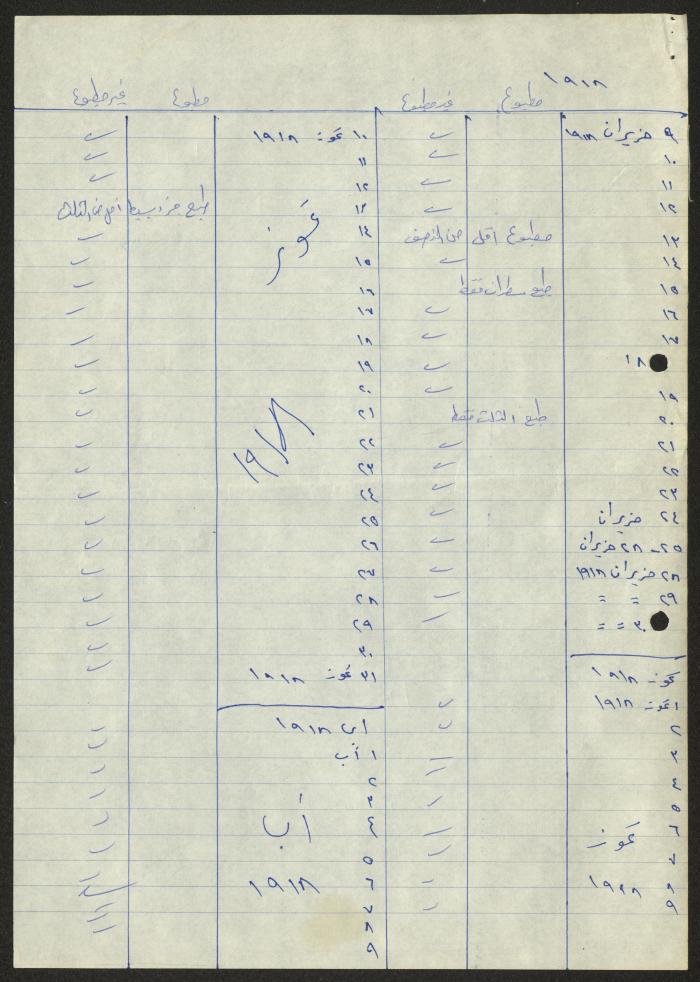 ١٩١٨
مطبوع غير مطبوع مطبوع غير مطبوع
٩ حزيران ١٩١٨
١٠
١١
١٢
١٣ مطبوع أقل من النصف
١٤
١٥ طبع سطران فقط
١٦
١٧
١٨
١٩
٢٠ طبع الثلث فقط
٢١
٢٢
٢٣
٢٤ حزيران
٢٥ - ٢٨ حزيران
٢٨ حزيران ١٩١٨
٢٩ = =
٣٠ = =
تموز ١٩١٨
١ تموز ١٩١٨
٢
٣
٤
٥
٦
تموز
٧
٨ ١٩١٨
٩
١٠ تموز ١٩١٨
١١
١٢
١٣ طبع جزء بسيط أقل من الثلث
١٤ تموز
١٥
١٦
١٧
١٨
١٩
٢٠
٢١
١٩١٨
٢٢
٢٣
٢٤
٢٥
٢٦
٢٧
٢٨
٢٩
٣٠
٣١ تموز ١٩١٨
آب ١٩١٨
١ آب
٢
٣
٤ آب
٥
٦ ١٩١٨
٧
٨
٩